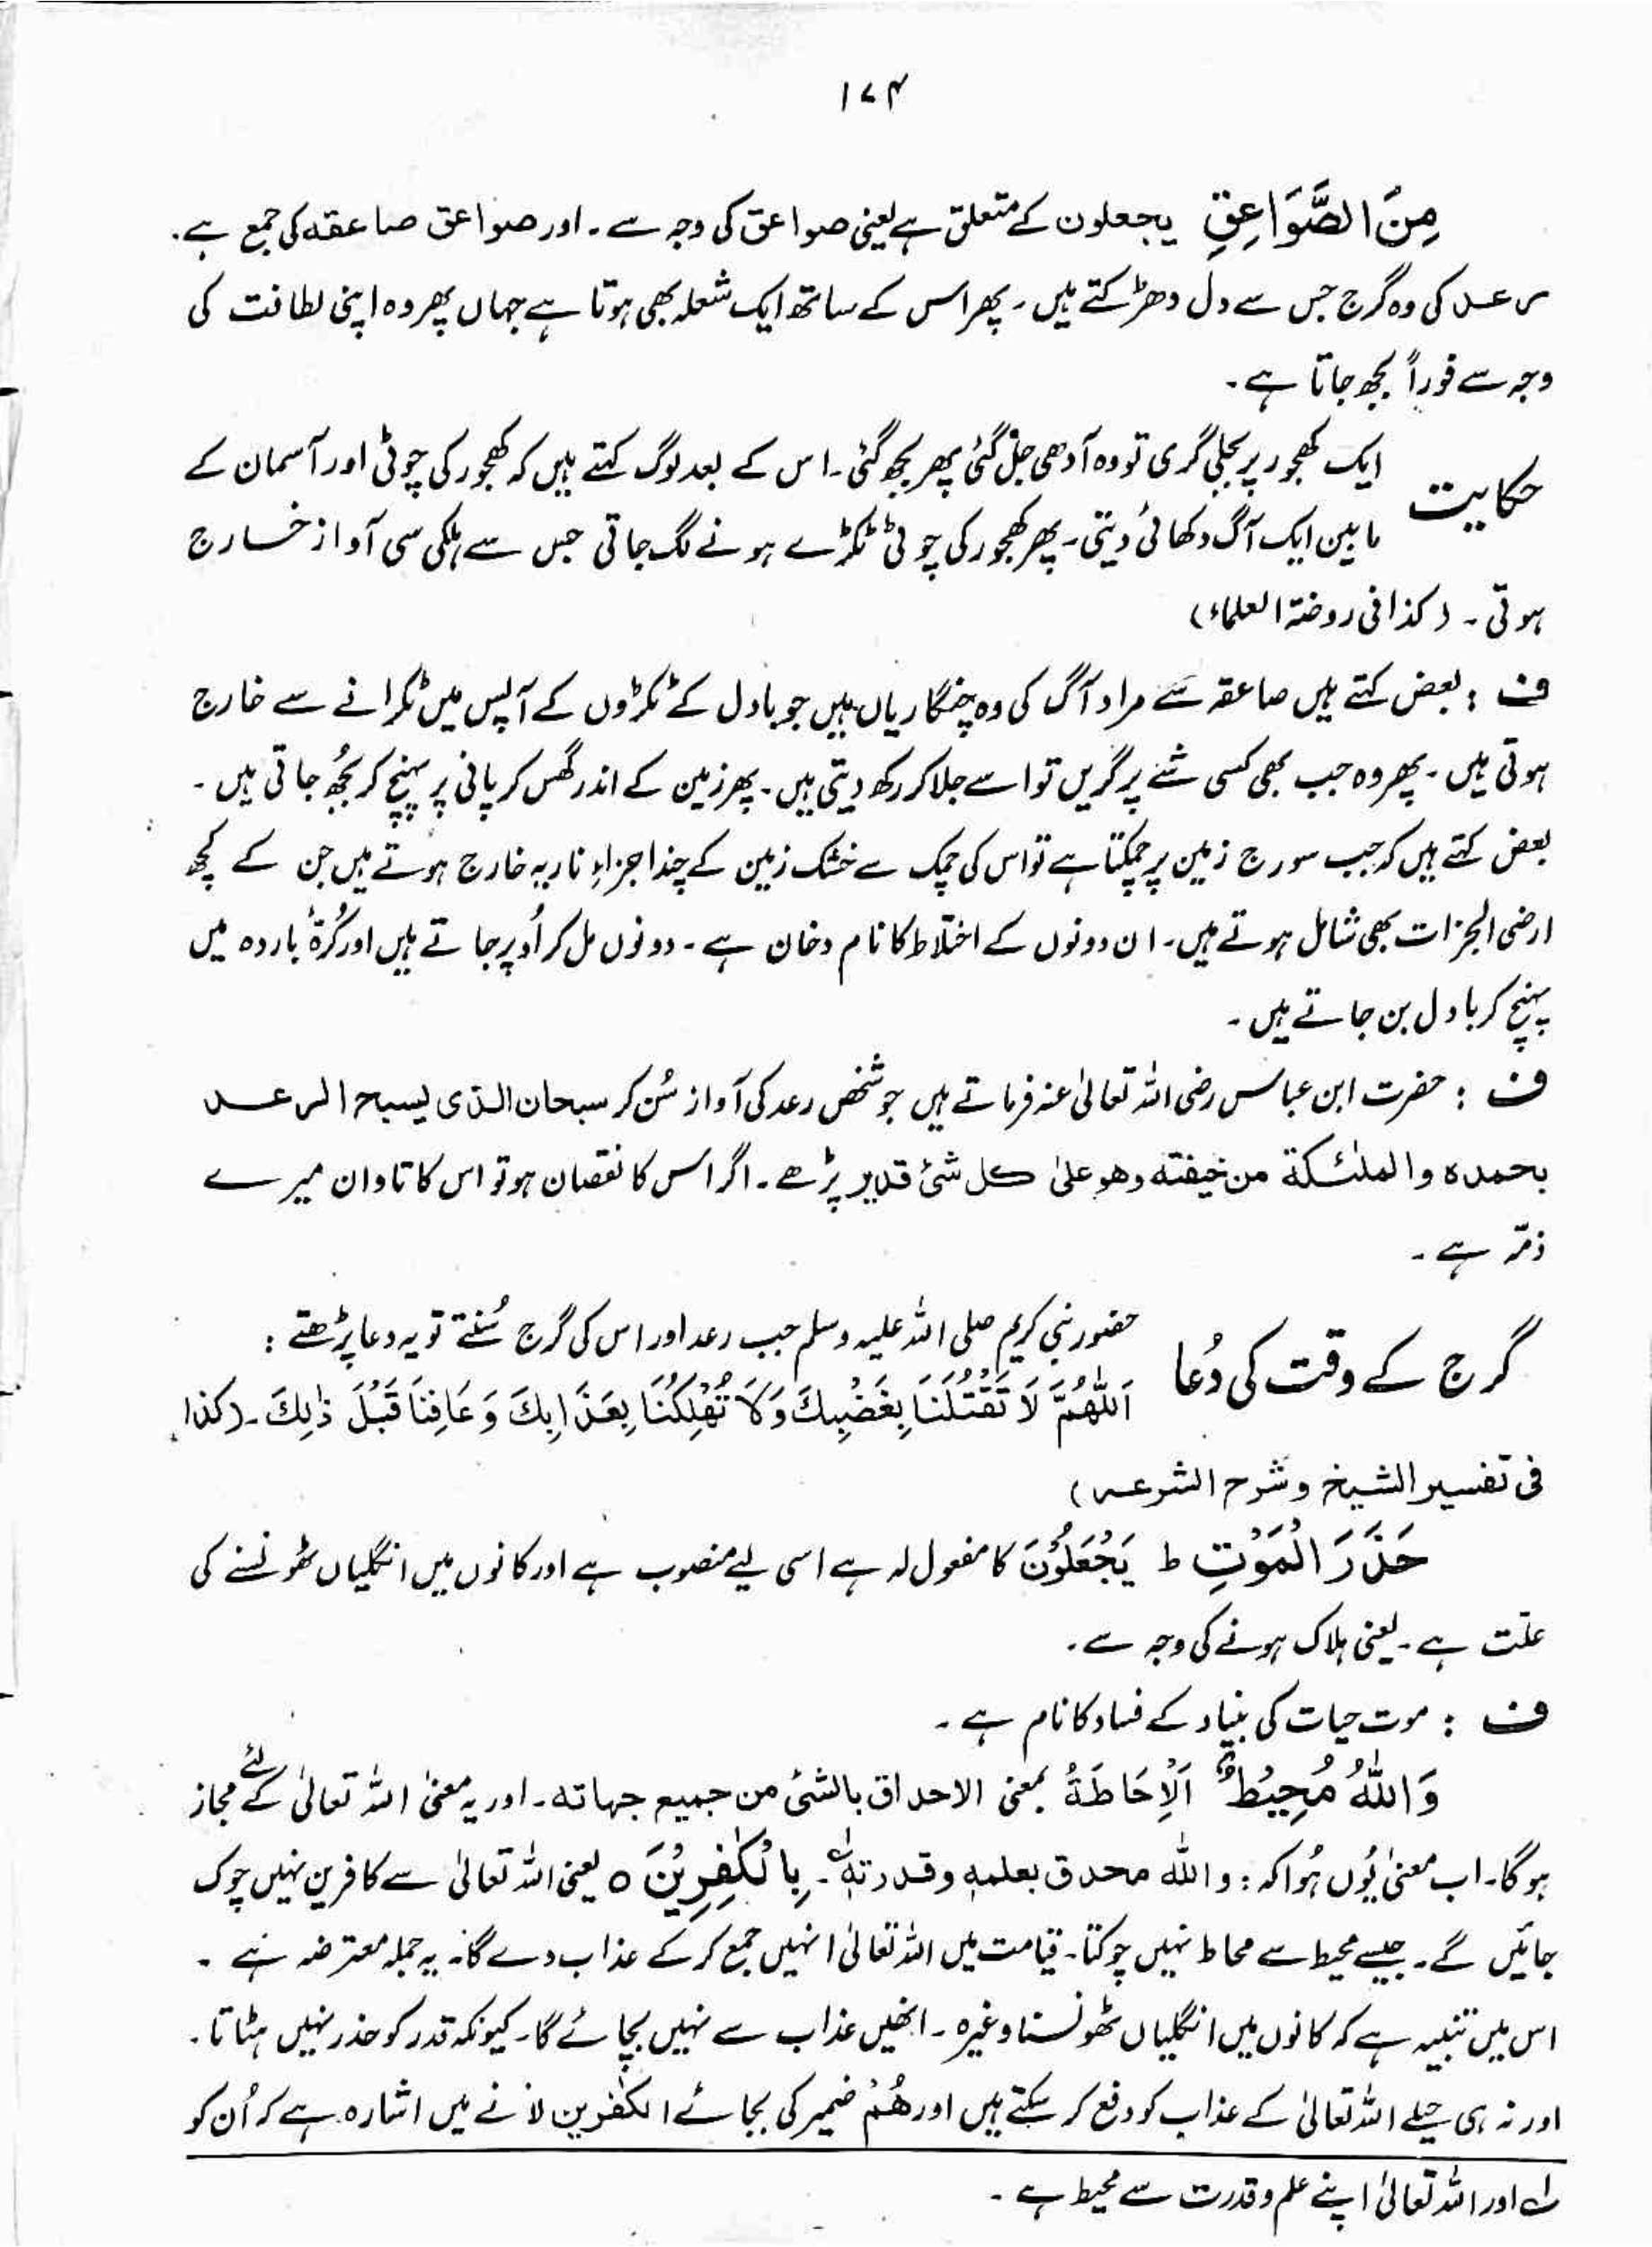 ۱۷۴
مِنَ الصَّوَاعِقِ یجعلون کے متعلق ہے یعنی صواعق کی وجہ سے۔ اور صواعق صاعقہ کی جمع ہے۔
رعد کی وہ گرج جس سے دل دھڑکتے ہیں۔ پھر اس کے ساتھ ایک شعلہ بھی ہوتا ہے جہاں پھر وہ اپنی لطافت کی
وجہ سے فوراً بجھ جاتا ہے۔
حکایت
ایک کھجور پر بجلی گری تو وہ آدھی جل گئی پھر بجھ گئی۔ اس کے بعد لوگ کہتے ہیں کہ کھجور کی چوٹی اور آسمان کے
مابین ایک آگ دکھائی دیتی۔ پھر کھجور کی چوٹی ٹکڑے ہونے لگ جاتی جس سے ہلکی سی آواز خارج
ہوتی۔ (کذا فی روضۃ العلماء)
ف : بعض کہتے ہیں صاعقہ سے مراد آگ کی وہ چنگاریاں ہیں جو بادل کے ٹکڑوں کے آپس میں ٹکرانے سے خارج
ہوتی ہیں۔ پھر وہ جب بھی کسی شے پر گریں تو اسے جلا کر رکھ دیتی ہیں۔ پھر زمین کے اندر گھس کر پانی پر پہنچ کر بُجھ جاتی ہیں۔
بعض کہتے ہیں کہ جب سورج زمین پر چمکتا ہے تو اس کی چمک سے خشک زمین کے چند اجزاءِ ناریہ خارج ہوتے ہیں جن کے کچھ
ارضی البخرات بھی شامل ہوتے ہیں۔ ان دونوں کے اختلاط کا نام دخان ہے۔ دونوں مل کر اُوپر جاتے ہیں اور کُرۂ باردہ میں
پہنچ کر بادل بن جاتے ہیں۔
ف : حضرت ابن عباس رضی اللہ تعالیٰ عنہ فرماتے ہیں جو شخص رعد کی آواز سُن کر سبحان الذی یسبح الرعد
بحمدہ والملٰئکة من خیفته وھو علیٰ کل شئ قدیر پڑھے۔ اگر اس کا نقصان ہو تو اس کا تاوان میرے
ذمّہ ہے۔
گرج کے وقت کی دُعا
حضور نبی کریم صلی اللہ علیہ وسلم جب رعد اور اس کی گرج سُنتے تو یہ دعا پڑھتے :
اَللّٰھُمَّ لَا تَقْتُلْنَا بِغَضَبِكَ وَلَا تُھْلِكْنَا بِعَذَابِكَ وَعَافِنَا قَبْلَ ذٰلِكَ۔ (کذا
فی تفسیر الشیخ و شرح الشرعہ)
حَذَرَ الْمَوْتِ ط یَجْعَلُوْنَ کا مفعول لہ ہے اسی لیے منصوب ہے اور کانوں میں انگلیاں ٹھونسنے کی
علّت ہے۔ یعنی ہلاک ہونے کی وجہ سے۔
ف : موت حیات کی بنیاد کے فساد کا نام ہے۔
وَاللّٰہُ مُحِیْطٌۢ اَلْاِحَاطَةُ بمعنی الاحداق بالشئ من جمیع جھاته۔ اور یہ معنیٰ اللہ تعالیٰ کے لئے مجاز
ہوگا۔ اب معنیٰ یُوں ہُوا کہ : واللہ محدق بعلمہ وقدرتہ لہ۔ بِالْکٰفِرِیْنَ ○ یعنی اللہ تعالیٰ سے کافرین نہیں چوک
جائیں گے۔ جیسے محیط سے محاط نہیں چوکتا۔ قیامت میں اللہ تعالیٰ انہیں جمع کر کے عذاب دے گا۔ یہ جملہ معترضہ ہے۔
اس میں تنبیہ ہے کہ کانوں میں انگلیاں ٹھونسنا وغیرہ۔ انھیں عذاب سے نہیں بچائے گا۔ کیونکہ قدر کو حذر نہیں ہٹاتا۔
اور نہ ہی حیلے اللہ تعالیٰ کے عذاب کو دفع کر سکتے ہیں اور ھُمْ ضمیر کی بجائے الکٰفرین لانے میں اشارہ ہے کہ اُن کو
لہ اور اللہ تعالیٰ اپنے علم و قدرت سے محیط ہے۔